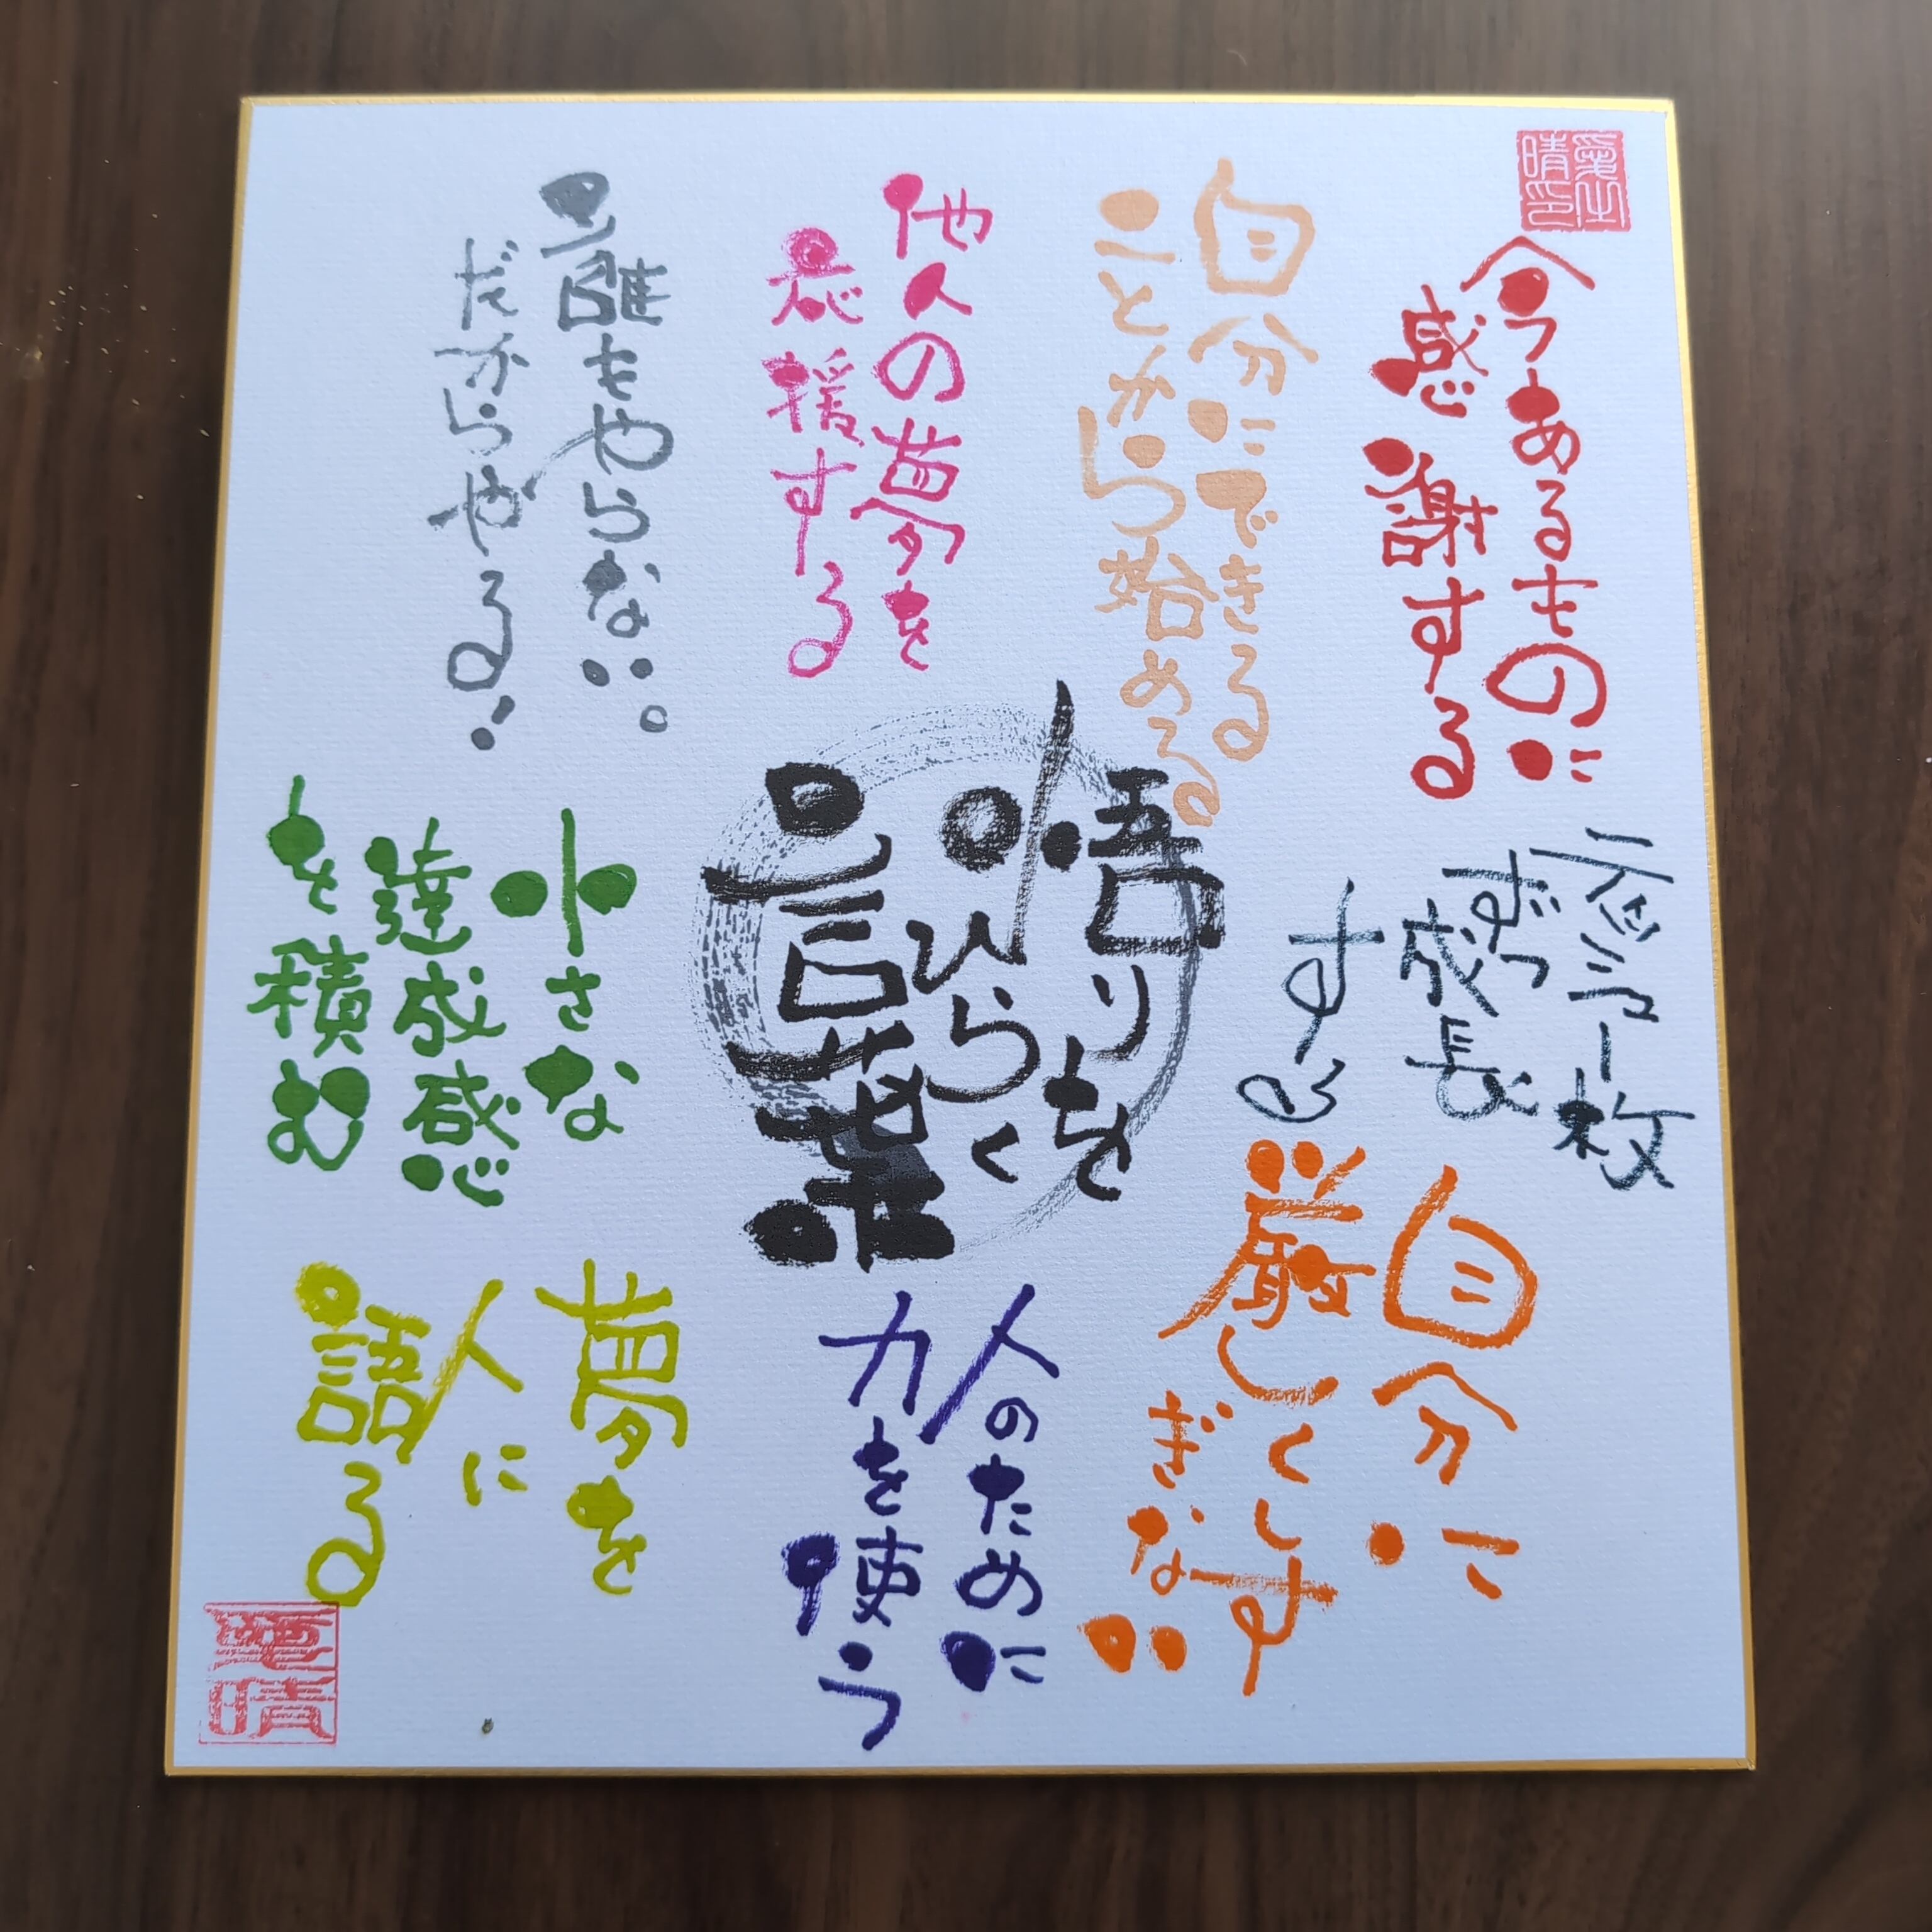 今あるものに
感謝する
自分にできる
ことから始める
他人の夢を
応援する
誰もやらない。
だからやる!
悟りを
ひらく
言葉
一枚
ずつ
成長
す
小さな
達成感
を積む
自分に
厳しくしす
ぎない
人のために
力を使う
夢を
人に
語る